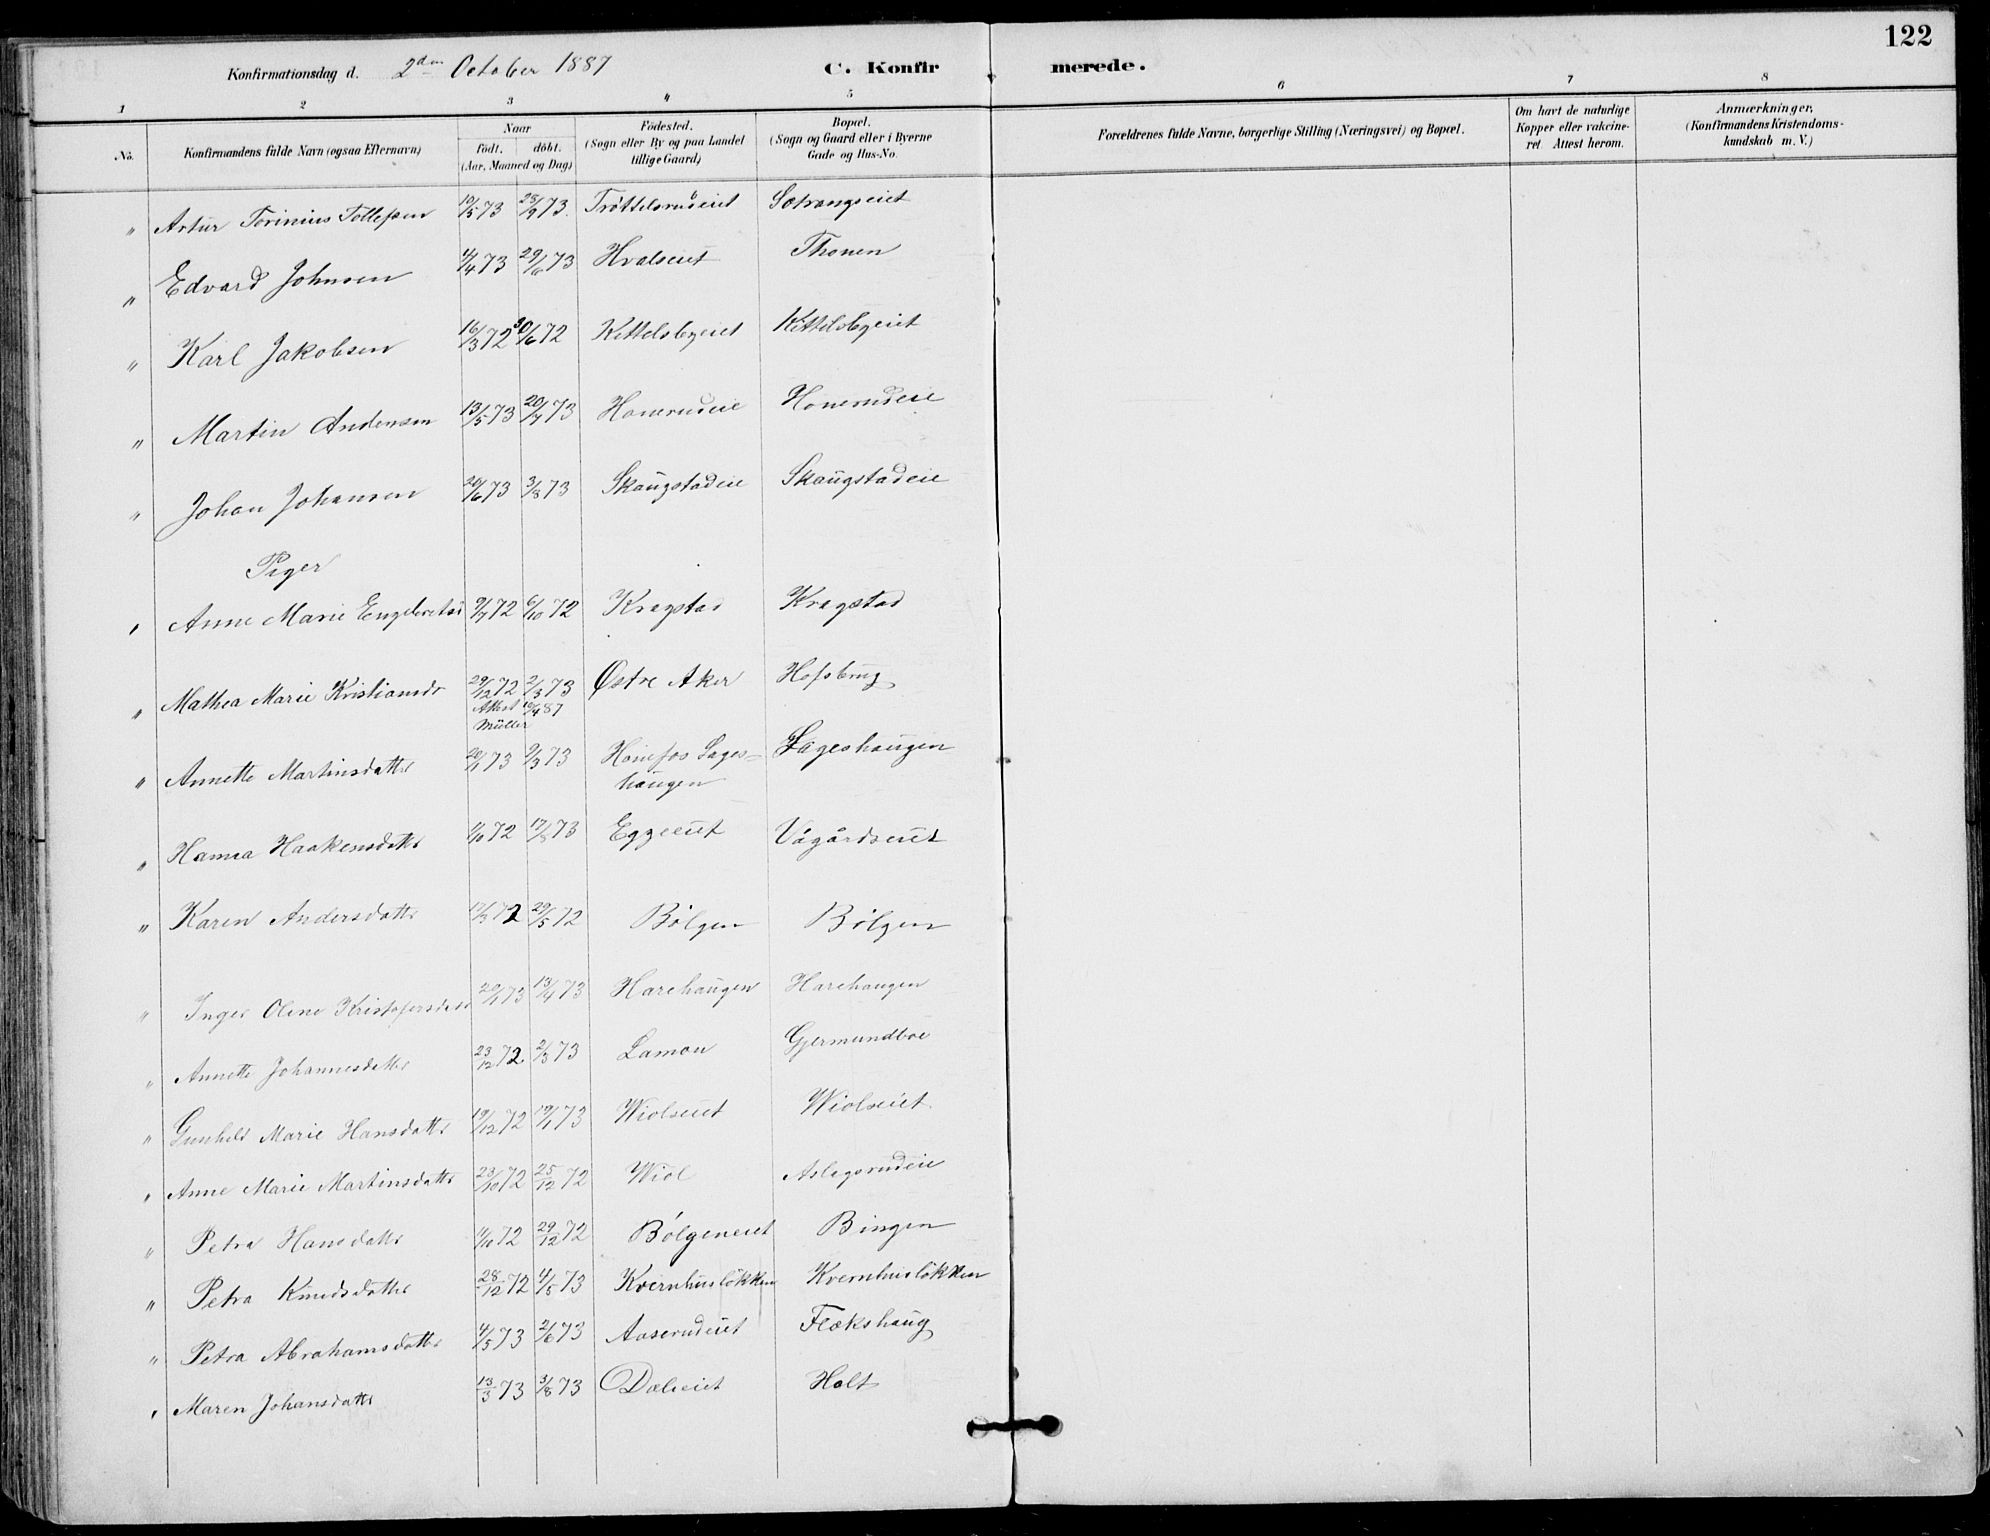 122
Konfirmationsdag d. 2den October 1887 C. Konfirmerede.
1 2 3 4 5 6 7 8
No. Konfirmandens fulde Navn (ogsaa Efternavn) Naar født. døbt. (Aar, Maaned og Dag) Fødested. (Sogn eller By og paa Landet tillige Gaard) Bopæl. (Sogn og Gaard eller i Byerne Gade og Hus-No. Forældrenes fulde Navne, borgerlige Stilling (Næringsvei) og Bopæl. Om havt de naturlige Kopper eller vakcineret. Attest herom. Anmærkninger, (Konfirmandens Kristendomskundskab m. V.)
" Artur Torinius Tollefsen 10/5 73 28/9 73. Trøttelsrudeiet Sætrangseiet
" Edvard Johnsen 4/4 73 29/6 73 Hvalseiet Thonen
" Karl Jakobsen 16/3 72 30/6 72 Kittelsbyeiet Kittelsbyeiet
" Martin Andersen 13/5 73 20/7 73 Honerudeie Honerudeie
" Johan Johansen 20/6 73 3/8 73 Skaugstadeie Skaugstadeie
Piger
" Anne Marie Engebretsd 9/7 72 6/10 72 Kragstad Kragstad
" Mathea Marie Kristiansdr 29/12 72 2/3 73 Østre Aker Hofsbrug
Attest 16/4 87
Müller
" Annette Martinsdatter 20/1 73 9/3 73 Hønefos Sages- Sageshaugen
haugen
" Hanna Haakensdatter 4/10 72 17/8 73 Eggeeiet Vågårdseiet
" Karen Andersdatter 17/3 72 29/5 72 Bølgen Bølgen
" Inger Oline Kristofersdatt 20/1 73 13/4 73 Harehaugen Harehaugen
" Annette Johannesdatter 23/12 72 2/3 73 Lamon Gjermundboe
" Gunhild Marie Hansdatter 19/12 72 19/1 73 Wiolseiet Wiolseiet
" Anne Marie Martinsdatter 23/10 72 25/12 72 Wiol Aslagsrudeie
" Petra Hansdatter 11/10 72 29/12 72 Bølgeneiet Bingen
" Petra Knudsdatter 28/12 72 4/5 73 Kvernhusløkken Kvernhusløkken
" Petra Abrahamsdatter 4/5 73 2/6 73 Aaserudeiet Flækshaug
" Maren Johansdatter 13/3 73 3/8 73 Dæleiet Holt